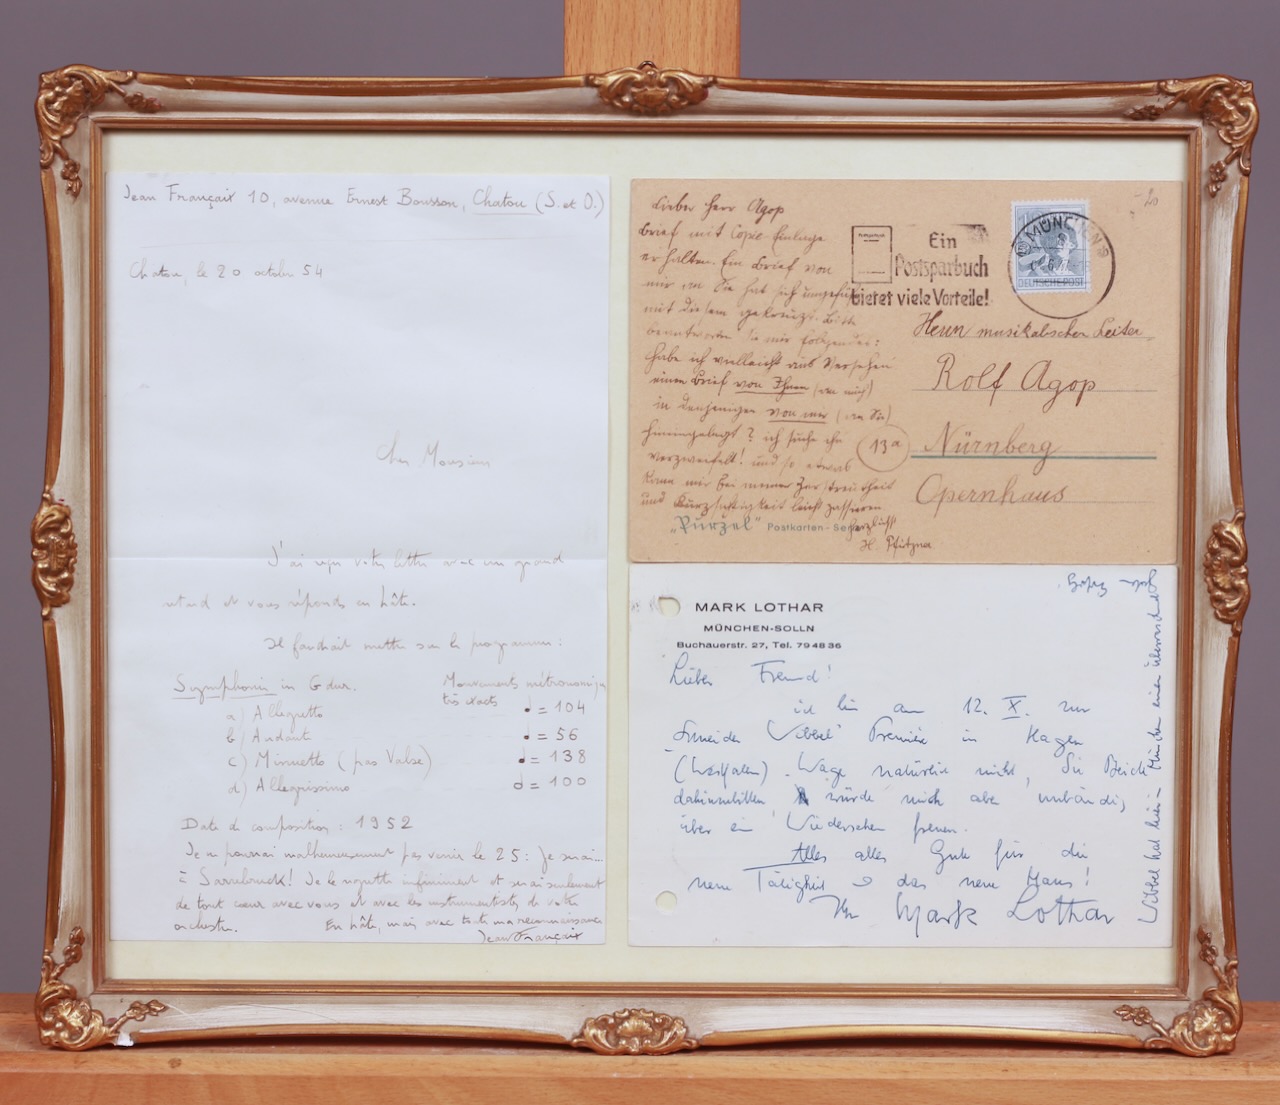 Jean Françaix 10, avenue Ernest Bousson, Chatou (S. et O.)
Chatou, le 20 octobre 54
Cher Monsieur
J'ai reçu votre lettre avec un grand
retard et vous réponds en hâte.
Il faudrait mettre sur le programme :
Symphonie in G dur.
Mouvements métronomiques
très exacts
a) Allegretto ♩ = 104
b) Andante ♩ = 56
c) Minuetto (pas Valse) ♩ = 138
d) Allegrissimo = 100
Date de composition : 1952
Je ne pourrai malheureusement pas venir le 25 : je serai...
à Sarrebruck ! Je le regrette infiniment et serai seulement
de tout cœur avec vous et avec les instrumentistes de votre
orchestre. En hâte, mais avec toute ma reconnaissance
Jean Françaix
Lieber Herr Agop
Brief mit Copie-Einlage
erhalten. Ein Brief von
mir an Sie hat sich ungefähr
mit diesem gekreuzt. Bitte
beantworten Sie mir folgendes:
Habe ich vielleicht aus Versehen
einen Brief von Ihnen (an mich)
in denjenigen von mir (an Sie)
hineingelegt? ich suche ihn
verzweifelt! und so etwas
kann mir bei meiner Zerstreutheit
und Kurzsichtigkeit leicht passieren
herzlichst
H. Pfitzner
"Purzel" Postkarten-Serie
Ein
Postsparbuch
bietet viele Vorteile!
MÜNCHEN
DEUTSCHE POST
Herrn musikalischen Leiter
Rolf Agop
13a
Nürnberg
Opernhaus
MARK LOTHAR
MÜNCHEN-SOLLN
Buchauerstr. 27, Tel. 79 48 36
Lieber Freund!
ich bin am 12. X. zur
Schneider Wibbel Premiere in Hagen
(Westfalen). Wage natürlich nicht, Sie Beide
dahinzubitten, würde mich aber unbändig
über ein Wiedersehen freuen.
Alles alles Gute für die
neue Tätigkeit u das neue Haus!
Ihr Mark Lothar
Wibbel hat hier in München einen